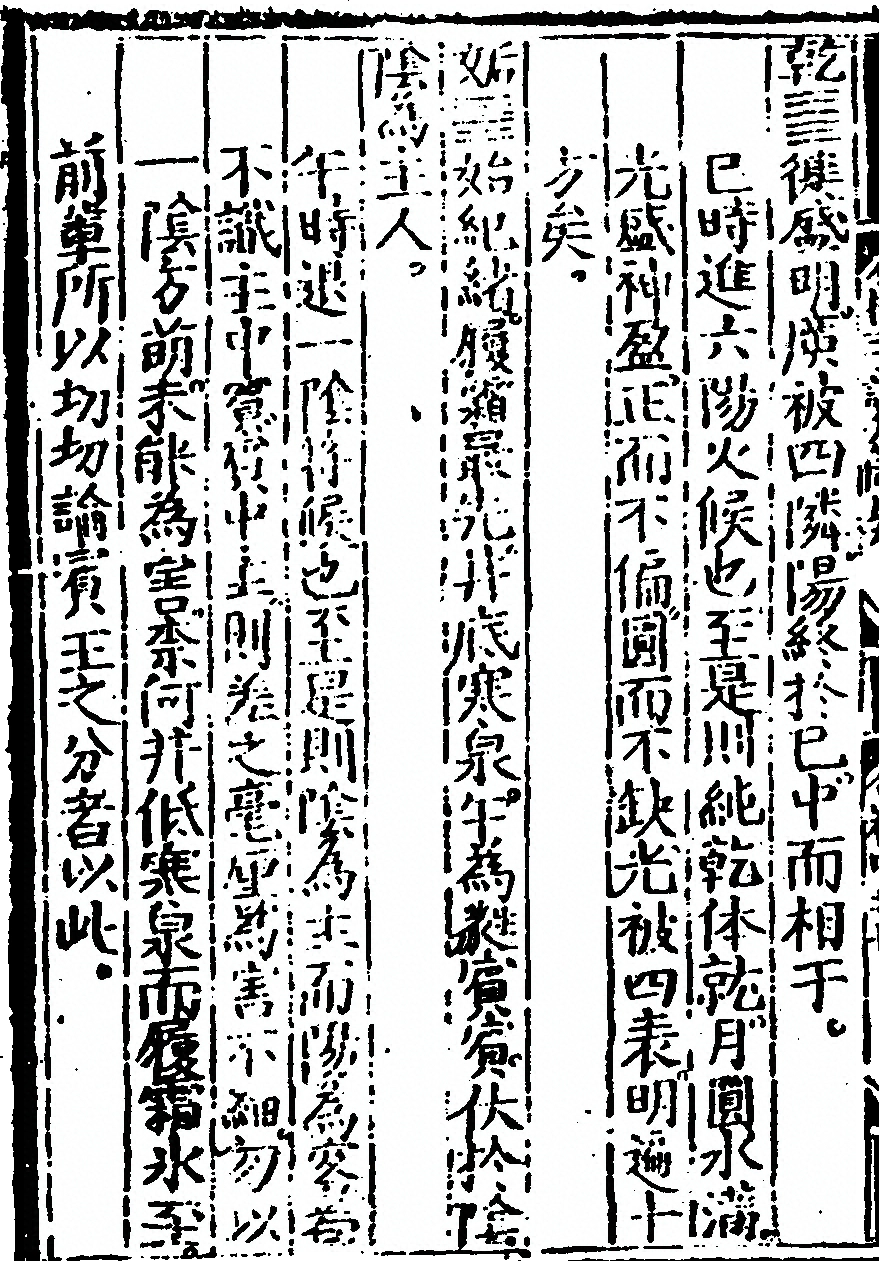 乾☰健盛明廣被四隣陽終於巳中而相干
巳時進六陽火候也至是則純乾体就月圓水滿
光盛神盈正而不偏圓而不缺光被四表明遍十
方矣
姤始紀緒履霜最先井底寒泉午為蕤賓賓伏於陰
陰為主人
午時退一陰符候也至是則陰為主而陽為客若
不識主中賓賓中主則差之毫厘為害不細勿以
一陰方萌未能為害柰何井低寒泉而履霜氷至
前軰所以切切論賓主之分者以此